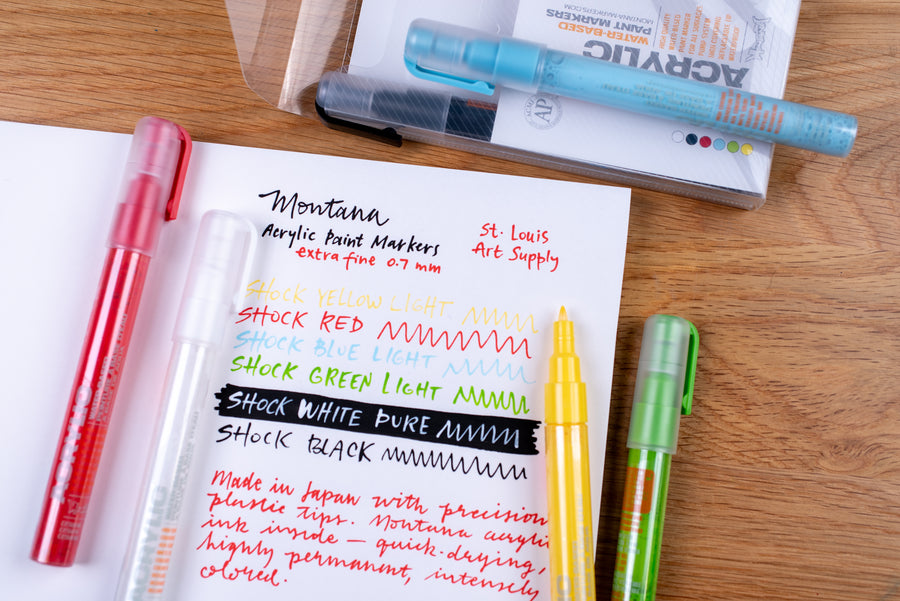 ACRYLIC
WATER-BASED
PAINT MARKERS
MONTANA-MARKERS.COM
AP
Montana
Acrylic Paint Markers
extra fine 0.7 mm
St. Louis
Art Supply
SHOCK YELLOW LIGHT
SHOCK RED
SHOCK BLUE LIGHT
SHOCK GREEN LIGHT
SHOCK WHITE PURE
SHOCK BLACK
Made in Japan with precision
plastic tips. Montana acrylic
ink inside — quick-drying,
highly permanent, intensely
colored.
ACRYLIC